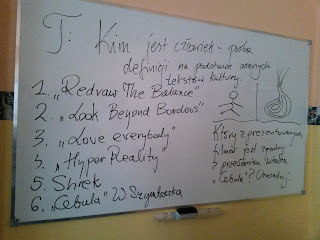 T: Kim jest człowiek - próba
definicji na podstawie różnych
tekstów kultury.
1. „Redraw The Balance"
2. „Look Beyond Borders"
3. „Love everybody"
4. „Hyper Reality"
5. Shrek
6. „Cebula" W. Szymborska
Który z prezentowanych
filmów jest zgodny
z przesłaniem wiersza
„Cebula"? Uzasadnij.